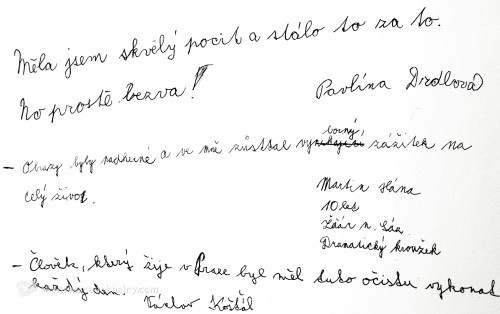 Měla jsem skvělý pocit a stálo to za to.
No prostě bezva!
Pavlína Drdlová
- Obrazy byly nádherné a ve mě zůstal výborný zážitek na
celý život.
Martin Hána
10 let
Žďár n. Sáz.
Dramatický kroužek
- Člověk, který žije v Praze by měl tuto očistu vykonat
každý den. Václav Košťál